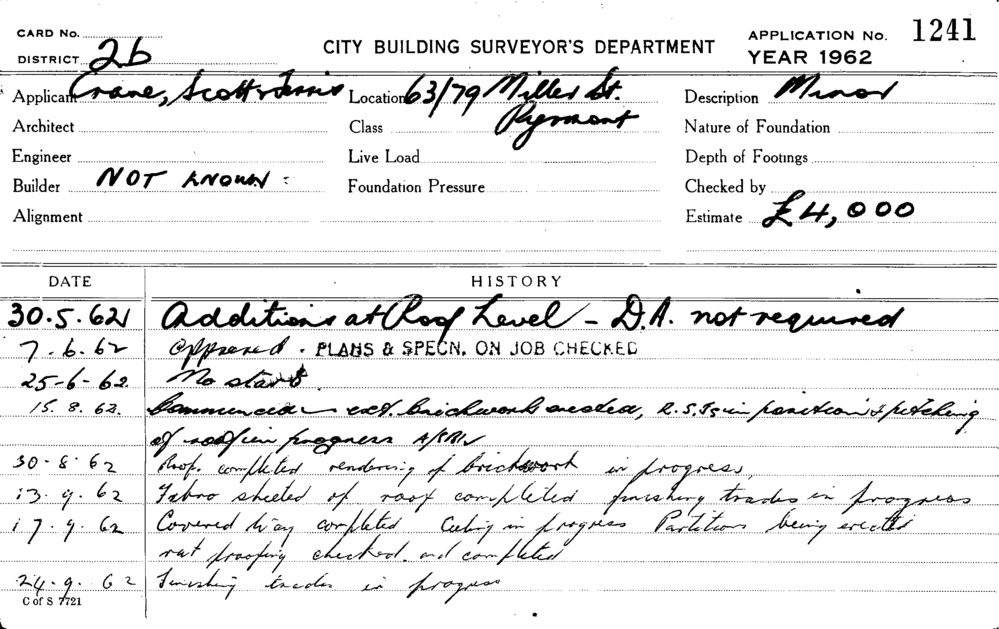 CARD No.
DISTRICT 2b
CITY BUILDING SURVEYOR'S DEPARTMENT
APPLICATION No. 1241
YEAR 1962
Applicant Crane, Scott & Ferris
Location 63/79 Miller St.
Pyrmont
Description Minor
Architect
Class
Nature of Foundation
Engineer
Live Load
Depth of Footings
Builder NOT KNOWN :
Foundation Pressure
Checked by
Alignment
Estimate £4,000
DATE HISTORY
30.5.62 Additions at Roof Level - D.A. not required
7.6.62 Approved . PLANS & SPECN. ON JOB CHECKED
25-6-62 No start
15.8.62. Commenced ext. brickwork erected, R.S.Js in position & pitching
of roof in progress
30-8-62 Roof. completed rendering of brickwork in progress
13.9.62 Fabro sheeted of roof completed finishing trades in progress
17.9.62 Covered Way completed Ceiling in progress Partitions being erected
rat proofing checked. and completed
24.9.62 Finishing trades in progress
C of S 7721